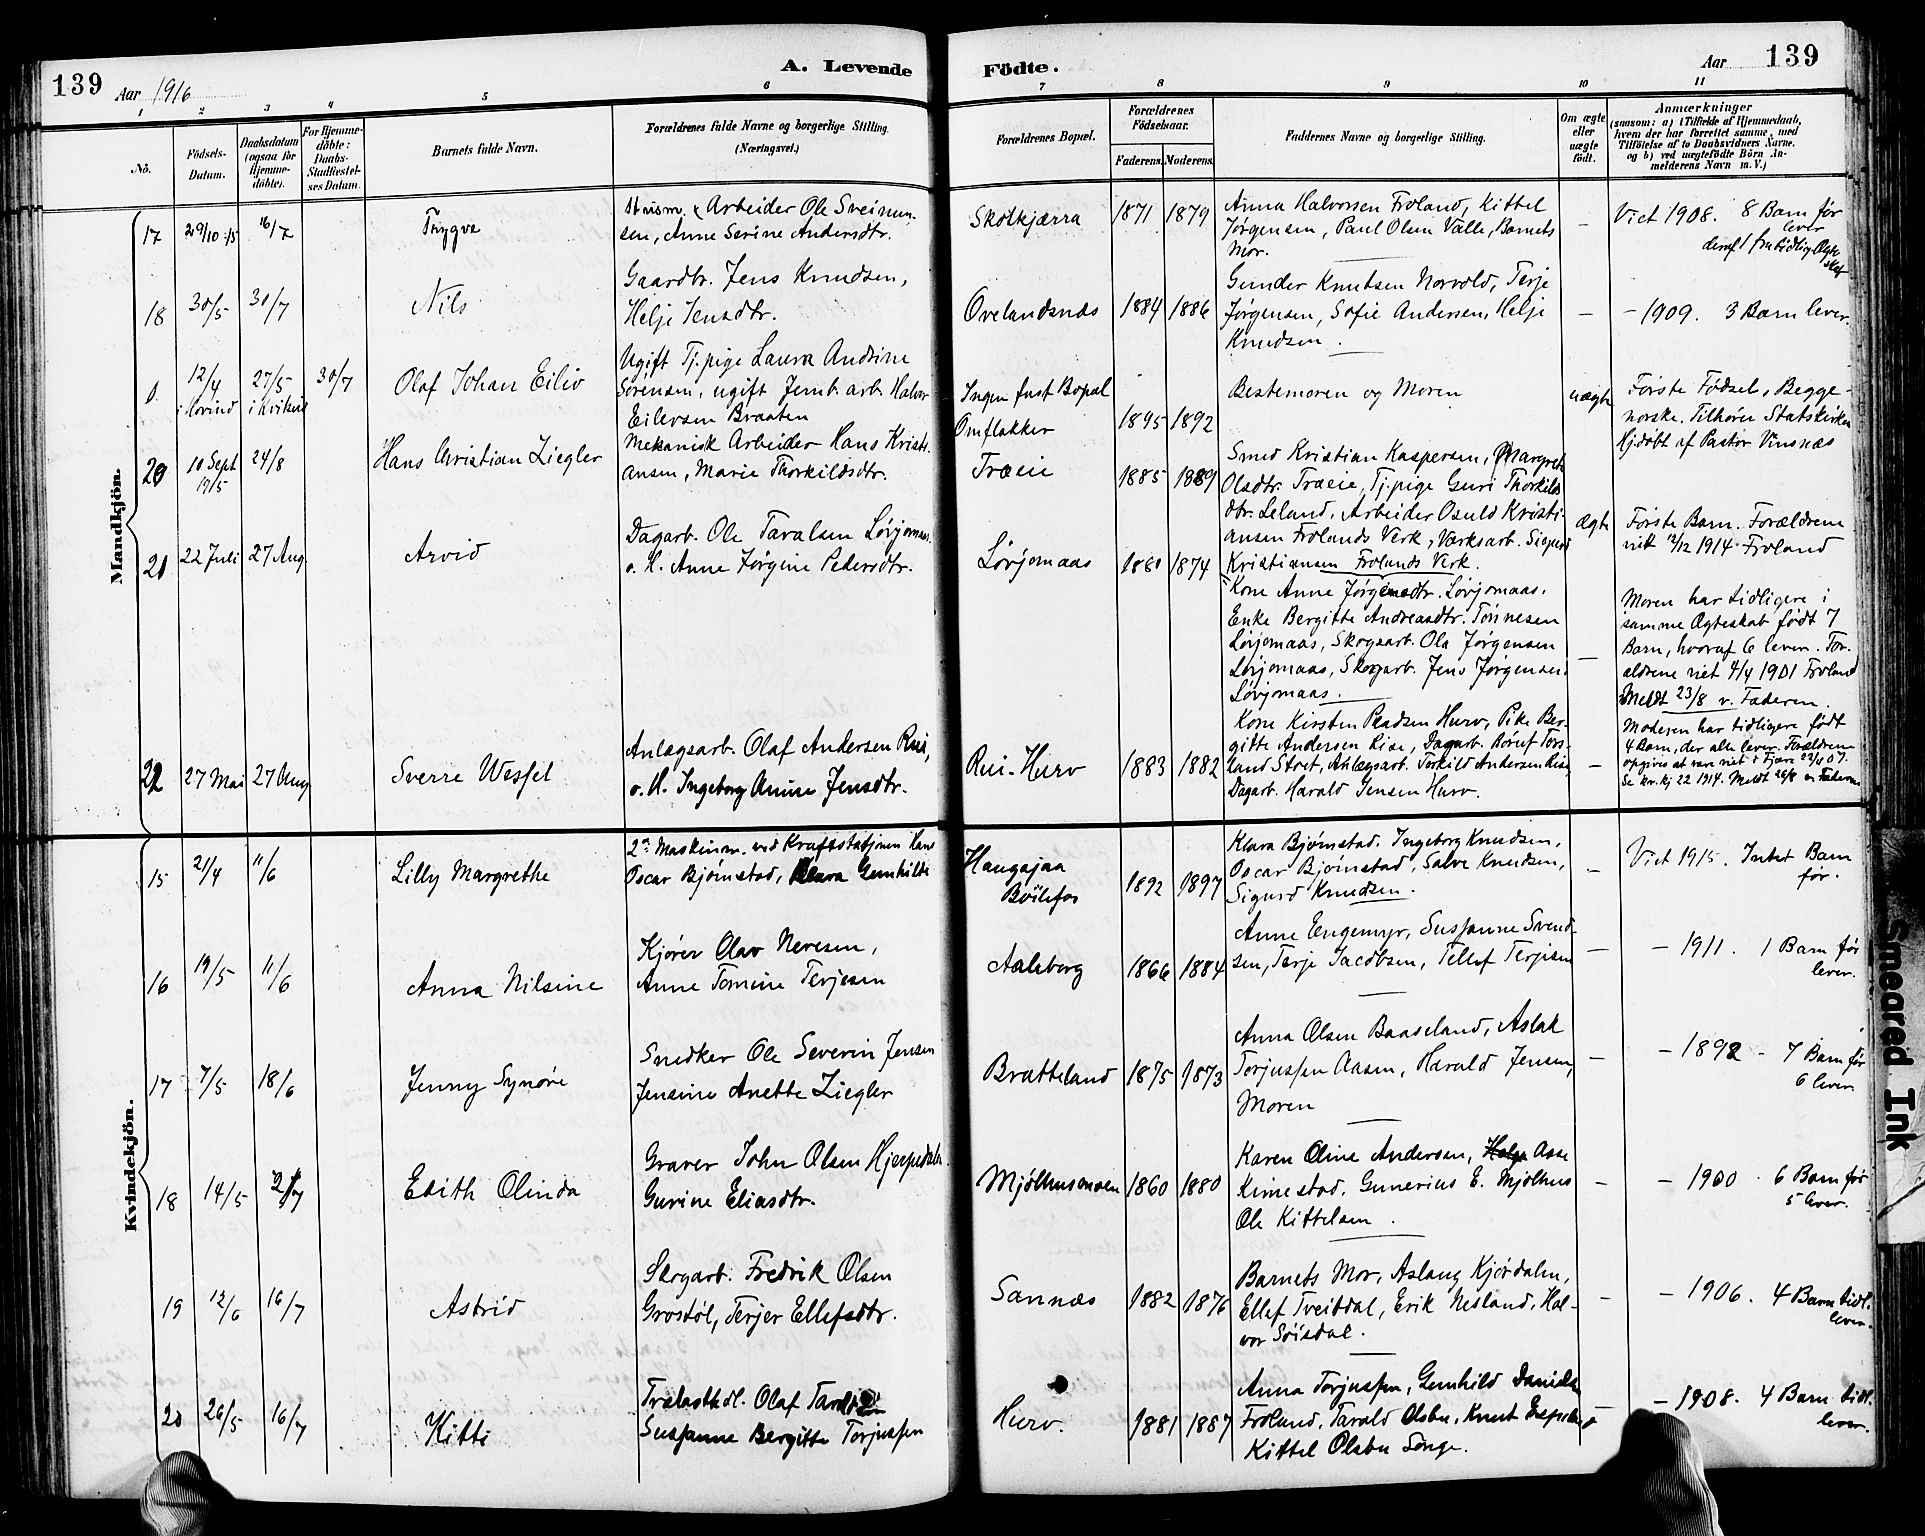 139
Aar 1916
A. Levende
Födte.
Aar
139
1 2 3 4 5 6 7 8 9 10 11
No.
Födsels-Datum.
Daabsdatum (ogsaa for Hjemme-döbte).
For Hjemme-döbte: Daabs-Stadfæstel-ses Datum.
Barnets fulde Navn.
Forældrenes fulde Navne og borgerlige Stilling.
(Næringsvei.)
Forældrenes Bopæl.
Forældrenes Födselsaar.
Faderens. Moderens.
Faddernes Navne og borgerlige Stilling.
Om ægte eller uægte födt.
Anmærkninger
(saasom: a) i Tilfælde af Hjemmedaab,
hvem der har forrettet samme, med
Tilföielse af to Daabsvidners Navne,
og b) ved uægtefödte Börn An-
melderens Navn m. V.)
Mandkjön.
17 29/10 15 16/7 Trygve
Husm. & Arbeider Ole Sveinun-
sen, Anne Serine Andersdtr.
Skotkjærra 1871 1879
Anna Halvorsen Froland, Kittel
Jørgensen, Paul Olsen Valle, Barnets
Mor.
–
Viet 1908. 8 Barn før
lever
deraf 1 fra tidlig. Ægte
skab
18 30/5 30/7 Nils
Gaardbr. Jens Knudsen,
Helje Jensdtr.
Ovelandsnæs 1884 1886
Gunder Knutsen Norvold, Terje
Jørgensen, Sofie Andersen, Helje
Knudsen.
–
– 1909. 3 Barn lever.
12/4 i Hovind 27/5 30/7 Olaf Johan Eiliv
Ugift Tj.pige Laura Andrine
Sørensen, ugift Jernb. arb. Halvor
Eilevsen Braaten
Ingen fast Bopæl
Omflakker 1895 1892
Bestemoren og Moren
uægte
Første Fødsel, Begge
norske. Tilhører Statskirken
Hj.døbt af Pastor Vinsnæs
20 10 Sept 1915 24/8 Hans Christian Ziegler
Mekanisk Arbeider Hans Kristi-
ansen, Marie Thorkildsdtr.
Træeie 1885 1889
Smed Kristian Kaspersen, Margrete
Olsdtr. Træeie, Tj.pige Guri Thorkilds
dtr. Leland, Arbeider Osuld Kristi-
ansen Frolands Verk, Værksarb. Sigurd
Kristiansen Frolands Verk.
ægte
Første Barn. Forældrene
viet 12/12 1914 Froland
21 22 Juli 27 Aug Arvid
Dagarb. Ole Taralsen Løvjomaas
o. H. Anne Jørgine Pedersdtr.
Løvjomaas 1860 1874
Kone Anne Jørgensdtr. Løvjomaas,
Enke Bergitte Andreasdtr. Tønnesen
Løvjomaas, Skogsarb. Ola Jørgensen
Løvjomaas, Skogarb. Jens Jørgensen
Løvjomaas.
–
Moren har tidligere i
samme Ægteskab født 7
Barn, hvoraf 6 lever. For-
ældrene viet 4/4 1901 Froland
Meldt 23/8 v. Faderen.
22 27 Mai 27 Aug Sverre Wessel
Anlægsarb. Olaf Andersen Rui,
o. H. Ingeborg Amine Jensdtr.
Rui-Hurv 1883 1882
Kone Kirsten Pladsen Hurv, Pike Ber-
gitte Andersen Rise, Dagarb. Torkild Andersen
Dagarb. Harald Jensen Hurv.
–
Moderen har tidligere født
4 Barn, der alle lever. Forældrene
opgives at være viet i Fjære 07.
Se kr.kj 22 1914. Meldt 26/8 v. Faderen
Kvindekjön.
15 21/4 11/6 Lilly Margrethe
2den Maskinm. ved Kraftstationen Hans
Oscar Bjørnstad, Klara Gunhilde
Haugsjaa
Bøilefos 1892 1897
Klara Bjørnstad. Ingeborg Knudsen,
Oscar Bjørnstad, Salve Knudsen,
Sigurd Knudsen.
–
Viet 1915. Intet Barn
før.
16 19/5 11/6 Anna Nilsine
Kjører Olav Neresen,
Anne Tomine Terjesen
Aaleborg 1866 1884
Anne Engemyr, Susanne Svend-
sen, Terje Jacobsen, Tellef Terjesen
–
– 1911. 1 Barn før
lever.
17 7/5 18/6 Jenny Synøve
Snedker Ole Severin Jensen
Jensine Anette Ziegler
Bratteland 1875 1873
Anna Olsen Baaseland, Aslak
Torjussen Aasen, Harald Jensen,
Moren
–
– 1892 – 7 Barn før
6 lever
18 14/5 2/7 Edith Olinda
Graver John Olsen Hjerpedalen
Gurine Eliasdtr.
Mjølhusmoen 1860 1880
Karen Oline Andersen, Aase
Rimestad. Gunerius E. Mjølhus
Ole Kittelsen.
–
– 1900 . 6 Barn før
5 lever.
19 12/6 16/7 Astrid
Skogarb. Fredrik Olsen
Grostøl, Terjer Ellefsdtr.
Sannæs 1882 1876
Barnets Mor, Aslaug Kjørdalen,
Ellef Tveitdal, Erik Nesland, Hal-
vor Søisdal.
–
– 1906. 4 Barn tidl.
lever.
20 26/5 16/7 Kitti
Trælasthdl. Olaf
Susanne Bergitte Torjussen
Hurv. 1881 1887
Anna Torjussen, Gunhild Danielsen
Froland, Tarald Olsbu, Knut Espeland
Kittel Olsbu Songe.
–
– 1908. 4 Barn tidl.
lever.
Smeared Ink